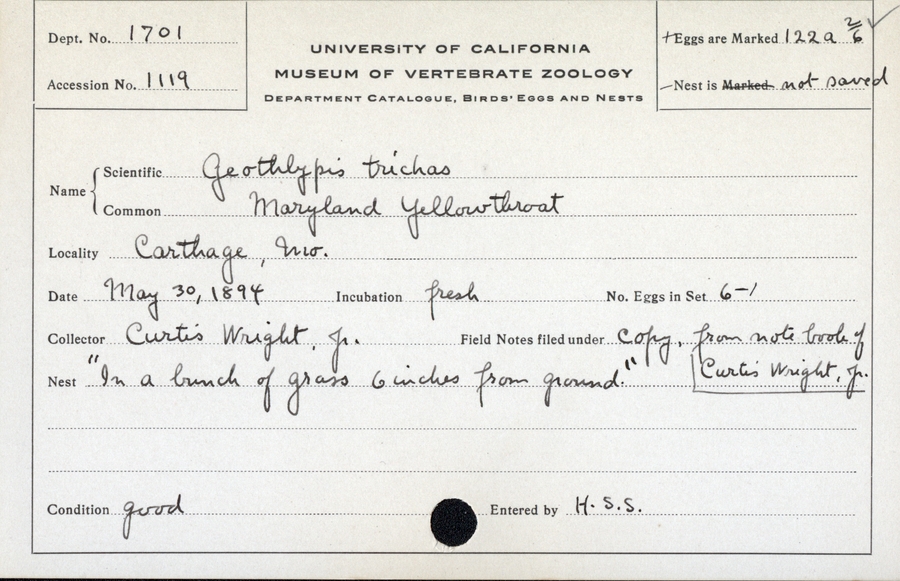 Dept. No. 1701
Accession No. 1119
UNIVERSITY OF CALIFORNIA
MUSEUM OF VERTEBRATE ZOOLOGY
DEPARTMENT CATALOGUE, BIRDS' EGGS AND NESTS
+Eggs are Marked 122a 2/6 ✓
–Nest is Marked not saved
Name { Scientific Geothlypis trichas
Common Maryland Yellowthroat
Locality Carthage, Mo.
Date May 30, 1894 Incubation fresh No. Eggs in Set 6-1
Collector Curtis Wright, Jr. Field Notes filed under copy, from note book of
Curtis Wright, Jr.
Nest "In a bunch of grass 6 inches from ground."
Condition good Entered by H. S. S.